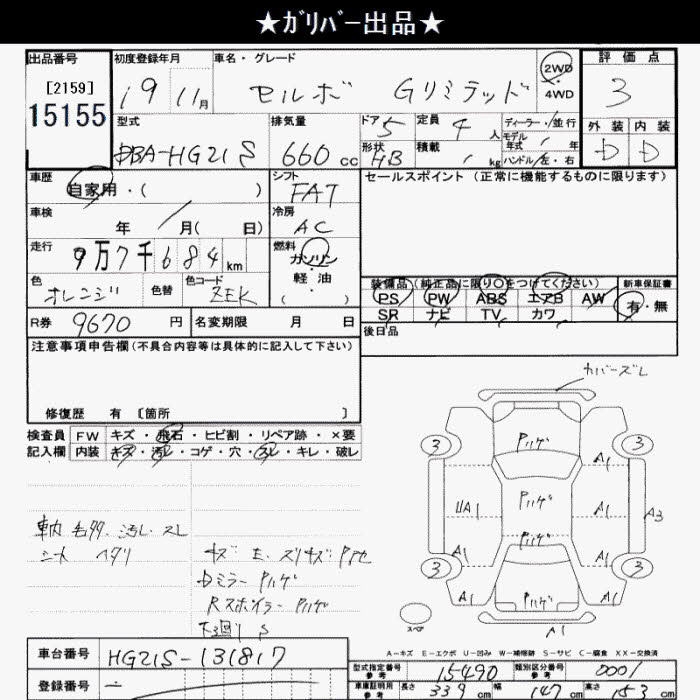 ★ｶﾞﾘﾊﾞｰ出品★
出品番号
[2159]
15155
初度登録年月
19 11月
車名・グレード
セルボ Gリミテッド
2WD
4WD
評価点
3
外装 内装
D D
型式
DBA-HG21S
排気量
660 cc
ドア 5
形状 HB
定員 4 人
積載 kg
ディーラー・並行
モデル年式 年
ハンドル 左・右
車歴
自家用・( )
シフト
FAT
セールスポイント (正常に機能するものに限ります)
車検
年 月( 日)
冷房
AC
走行
9万7千684km
燃料
ガソリン
軽油
( )
色
オレンジ
色替
色コード
ZEK
装備品 (純正品に限り○をつけてください)
PS PW ABS エアB AW
SR ナビ TV カワ
新車保証書
有・無
R券 9670 円
名変期限 月 日
後日品
注意事項申告欄(不具合内容等は具体的に記入して下さい)
修復歴 有 [箇所 ]
検査員記入欄
FW キズ・飛石・ヒビ割・リペア跡・×要
内装 キズ・汚レ・コゲ・穴・スレ・キレ・破レ
車内 汚レ・スレ
シート ヘタリ
キズ E. スリキズ
Dミラー Pハゲ
Rスポイラー Pハゲ
下廻り S
カバーズレ
Pハゲ
3
3
A1
Pハゲ
UA1
A1
A3
Pハゲ
A1
A1
3
3
Pハゲ
A1
A1
A1
スペア
A-キズ E-エクボ U-凹み W-補修跡 S-サビ C-腐食 XX-交換済
車台番号
HG21S-131817
登録番号
型式指定番号 参考
15490
類別区分番号 参考
0001
車庫証明用 参考
長さ 339 cm
幅 147 cm
高さ 153 cm